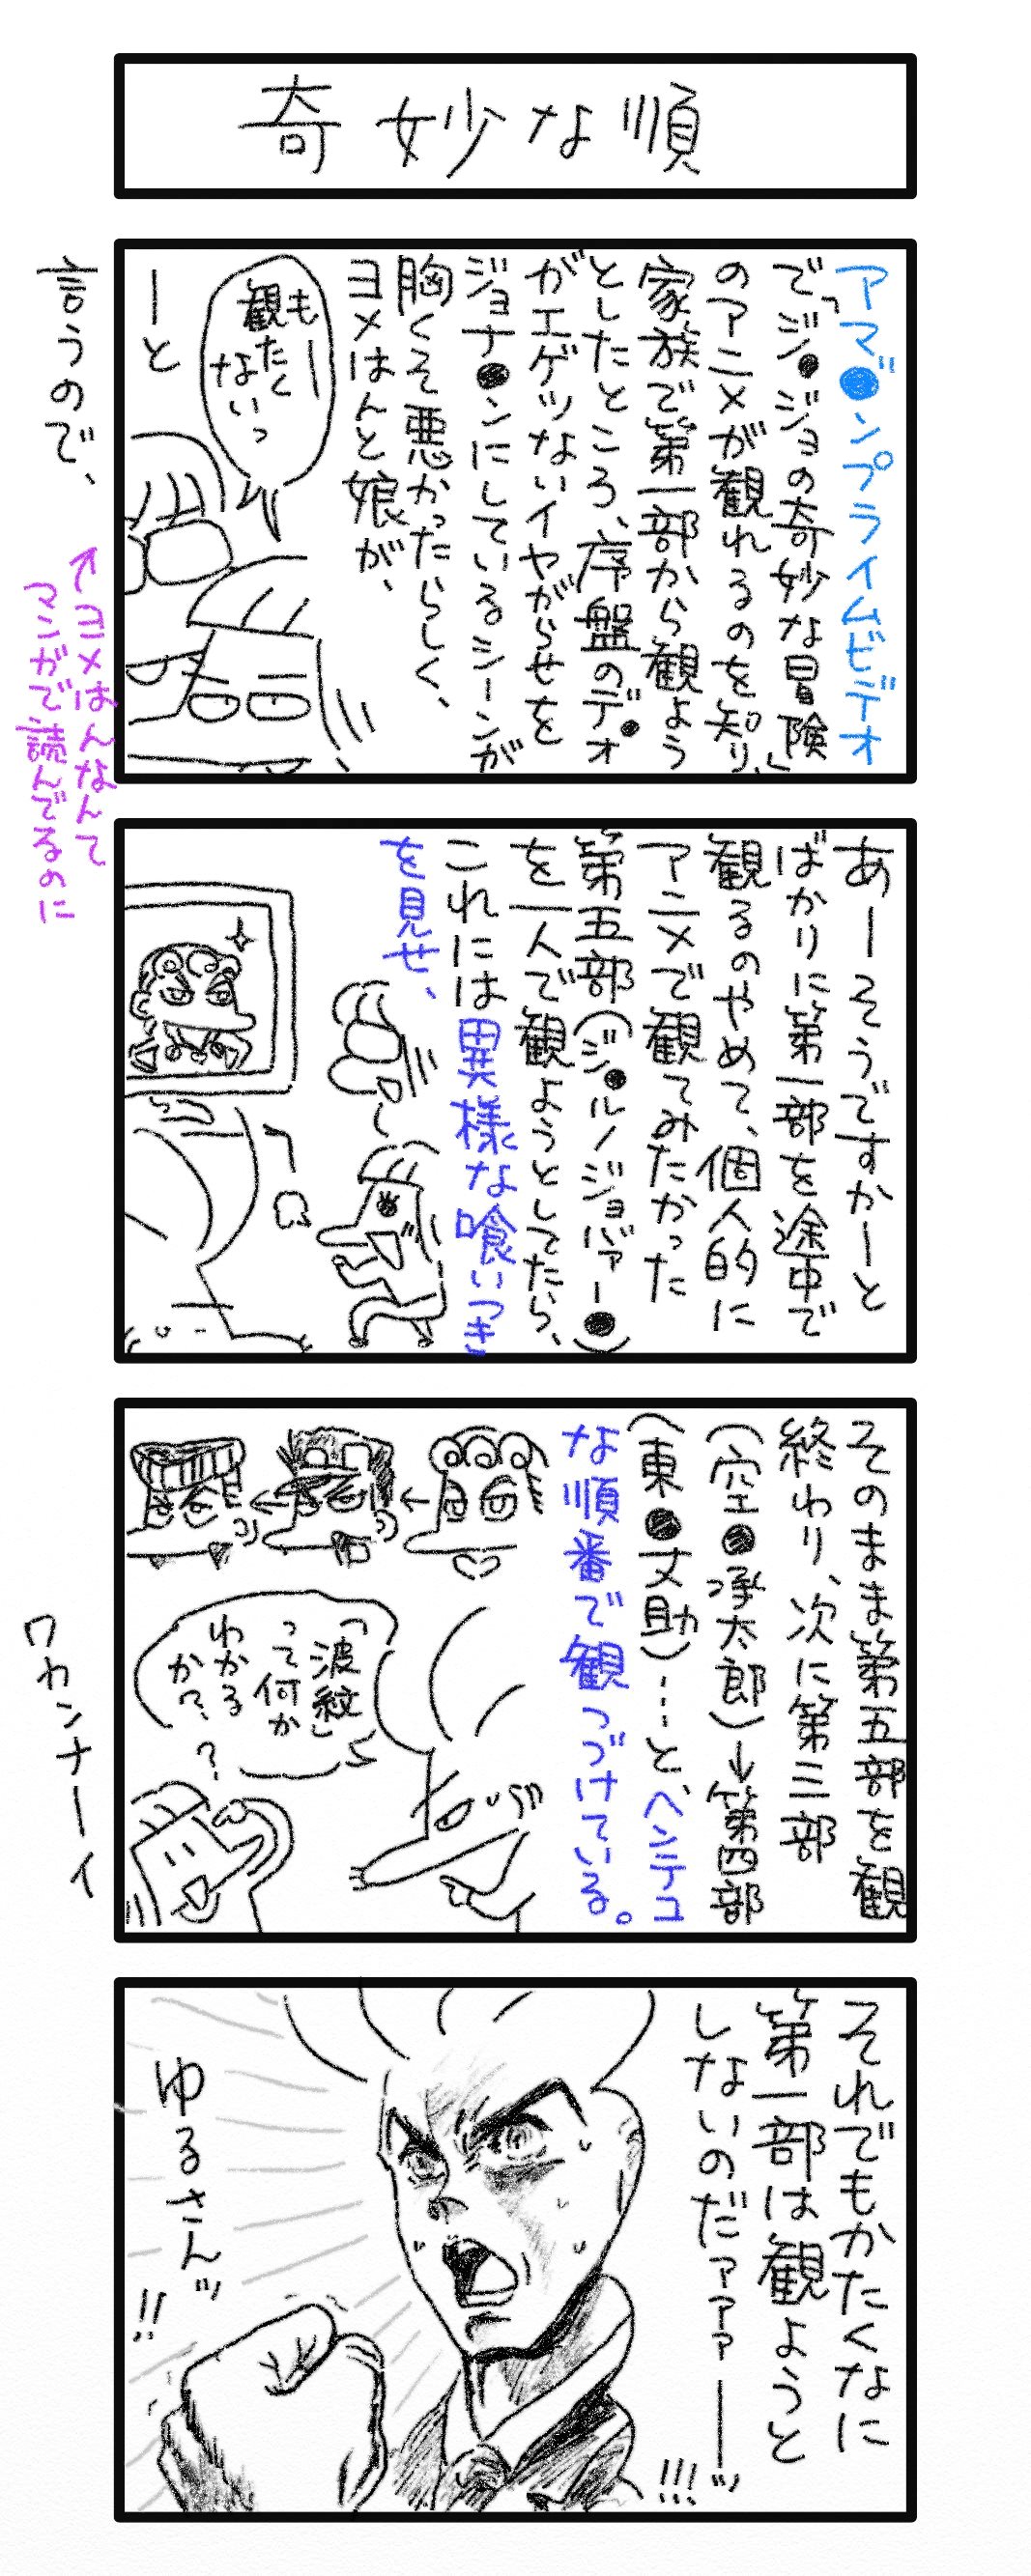 奇妙な順
アマ●ンプライムビデオ
で「ジ●ジョの奇妙な冒険」
のアニメが観れるのを知り、
家族で第一部から観よう
としたところ、序盤のデ●オ
がエゲツないイヤがらせを
ジョナ●ンにしているシーンが
胸くそ悪かったらしく、
ヨメはんと娘が、
もー
観たく
ないっ
ーと
言うので、
←ヨメはんなんて
マンガで読んでるのに
あーそうですかーと
ばかりに第一部を途中で
観るのやめて、個人的に
アニメで観てみたかった
第五部(ジ●ルノジョバァー●)
を一人で観ようとしてたら、
これには異様な喰いつき
を見せ、
そのまま第五部を観
終わり、次に第三部
(空●承太郎)→第四部
(東●丈助)…と、ヘンテコ
な順番で観つづけている。
「波紋」
って何か
わかる
か?
?
ワカンナーイ
それでもかたくなに
第一部は観ようと
しないのだァァァーーッ!!!
ゆるさんッ!!